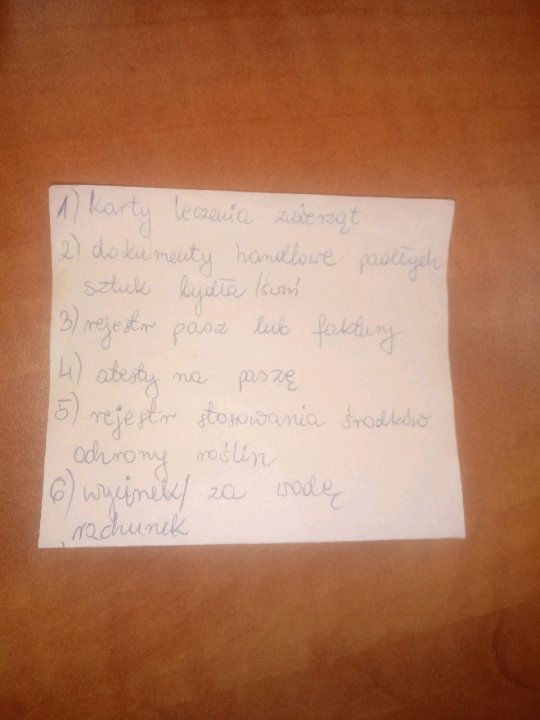 1) Karty leczenia zwierząt
2) dokumenty handlowe padłych
sztuk bydła/świń
3) rejestr pasz lub faktury
4) atesty na paszę
5) rejestr stosowania środków
ochrony roślin
6) wycinek/ za wodę
rachunek